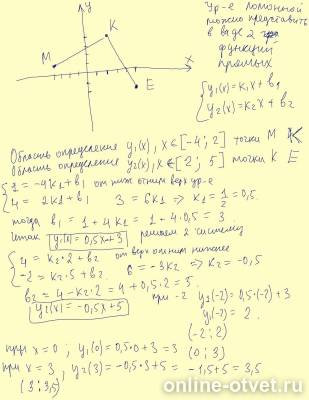 y
K
M
x
E
Ур-е ломонной
можно представить
в виде 2
функций
прямых
y₁(x)=k₁x+b₁
y₂(x)=k₂x+b₂
Область определения y₁(x), x∈[-4; 2] точки M K
Область определения y₂(x), x∈[2; 5] точки K E
1=-4k₁+b₁ от ниж отним верх ур-е
4= 2k₁+b₁ 3=6k₁ => k₁=1/2=0,5
тогда b₁=1+4k₁=1+4·0,5=3
Итак y₁(x)=0,5x+3 решаем 2 систему
4=k₂·2+b₂ от верх отним нижнее
-2=k₂·5+b₂ 6=-3k₂ => k₂=-0,5
b₂=4-k₂·2=4+0,5·2=5
y₂(x)=-0,5x+5
при -2 y₁(-2)=0,5·(-2)+3
y₁(-2)=2
(-2; 2)
при x=0; y₁(0)=0,5·0+3=3 (0; 3)
при x=3, y₂(3)=-0,5·3+5=-1,5+5=3,5
(3; 3,5)
online-otvet.ru